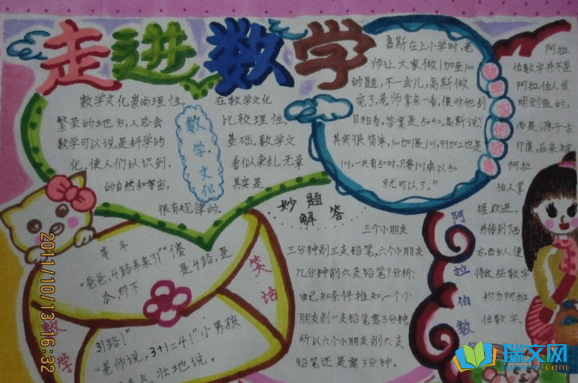 走进数学
数学文化崇尚理性,
繁荣的地方,人总会
数学可以说是科学的
化,使人们认识到,
的自然和宇宙,
很有规律的。
在数学文化
比较理性
基础,数学文
看似杂乱无章
其实是
数学文化
高斯在上小学时,老
师让大家做1加至100
的题,不一会儿,高斯做
完了,老师拿来一看,便对他刮
目相看,答案是5050,高斯说:
其实很简单,
就可以了。”
阿拉
伯数字并不是
阿拉伯人发
明创造的,
而是源于古
印度,后来被
阿拉
伯人掌
握、改进,
并传到了西
方,西方人便
将这些数字
称为阿拉
伯数字。
阿拉伯数
妙题
解答
三个小朋友
三分钟削三支铅笔,六个小朋友
几分钟削六支铅笔?分析:
由已知条件推知,一个小
朋友削一支铅笔要3分钟,
所以六个小朋友削六支
铅笔还是需3分钟。
等车
“爸爸,4路车来了!”“傻
瓜,那不
是4路,是
31路!”
“老师说,3+1=4!”小男孩
壮地说。
数学
笑话
2011/10/13 16:32
瑞文网